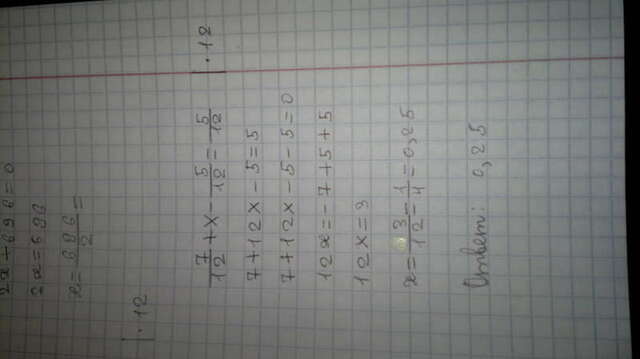 2x + 696 = 0
2x = 696
x = 696/2 =
| · 12
7/12 + x - 5/12 = 5/12 | · 12
7 + 12x - 5 = 5
7 + 12x - 5 - 5 = 0
12x = -7 + 5 + 5
12x = 3
x = 3/12 - 1/4 = 0,25
Ответ: 0,25